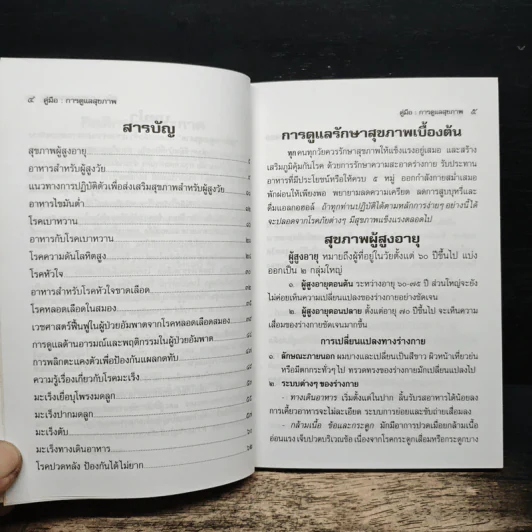 ๔ คู่มือ : การดูแลสุขภาพ
สารบัญ
สุขภาพผู้สูงอายุ
อาหารสำหรับผู้สูงวัย
แนวทางการปฏิบัติตัวเพื่อส่งเสริมสุขภาพสำหรับผู้สูงวัย
อาหารไขมันต่ำ
โรคเบาหวาน
อาหารกับโรคเบาหวาน
โรคความดันโลหิตสูง
โรคหัวใจ
อาหารสำหรับโรคหัวใจขาดเลือด
โรคหลอดเลือดในสมอง
เวชศาสตร์ฟื้นฟูในผู้ป่วยอัมพาตจากโรคหลอดเลือดสมอง
การดูแลด้านอารมณ์และพฤติกรรมในผู้ป่วยอัมพาต
การพลิกตะแคงตัวเพื่อป้องกันแผลกดทับ
ความรู้เรื่องเกี่ยวกับโรคมะเร็ง
มะเร็งเยื่อบุโพรงมดลูก
มะเร็งปากมดลูก
มะเร็งตับ
มะเร็งทางเดินอาหาร
โรคปวดหลัง ป้องกันได้ไม่ยาก
คู่มือ : การดูแลสุขภาพ ๕
การดูแลรักษาสุขภาพเบื้องต้น
ทุกคนทุกวัยควรรักษาสุขภาพให้แข็งแรงอยู่เสมอ และสร้าง
เสริมภูมิคุ้มกันโรค ด้วยการรักษาความสะอาดร่างกาย รับประทาน
อาหารที่มีประโยชน์หรือให้ครบ ๕ หมู่ ออกกำลังกายสม่ำเสมอ
พักผ่อนให้เพียงพอ พยายามลดความเครียด ลดการสูบบุหรี่และ
ดื่มแอลกอฮอล์ ถ้าทุกท่านปฏิบัติได้ตามหลักการง่ายๆ อย่างนี้ได้
จะปลอดจากโรคภัยต่างๆ มีสุขภาพแข็งแรงตลอดไป
สุขภาพผู้สูงอายุ
ผู้สูงอายุ หมายถึงผู้ที่อยู่ในวัยตั้งแต่ ๖๐ ปีขึ้นไป แบ่ง
ออกเป็น ๒ กลุ่มใหญ่
๑. ผู้สูงอายุตอนต้น ระหว่างอายุ ๖๐-๗๕ ปี ส่วนใหญ่จะยัง
ไม่ค่อยเห็นความเปลี่ยนแปลงของร่างกายอย่างชัดเจน
๒. ผู้สูงอายุตอนปลาย ตั้งแต่อายุ ๗๐ ปีขึ้นไป จะเห็นความ
เสื่อมของร่างกายชัดเจนมากขึ้น
การเปลี่ยนแปลงทางร่างกาย
๑. ลักษณะภายนอก ผมบางและเปลี่ยนเป็นสีขาว ผิวหน้าเหี่ยวย่น
หรือมีตกกระทั่วๆ ไป ทรวดทรงของร่างกายมักเปลี่ยนแปลงไป
๒. ระบบต่างๆ ของร่างกาย
- ทางเดินอาหาร เริ่มตั้งแต่ในปาก ลิ้นรับรสอาหารได้น้อยลง
การเคี้ยวอาหารจะไม่ละเอียด ระบบการย่อยและขับถ่ายเสื่อมลง
- กล้ามเนื้อ ข้อและกระดูก มักมีอาการปวดเมื่อยกล้ามเนื้อ
อ่อนแรง เจ็บปวดบริเวณข้อ เนื่องจากโรคกระดูกเสื่อมหรือกระดูกบาง